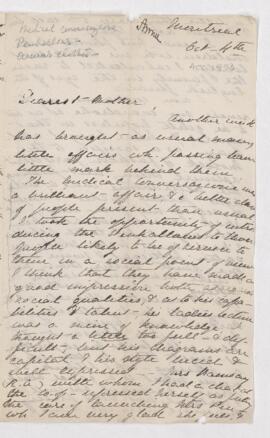 Medical conversazione
Penhallows
Anna
Montreal
Oct. 4th
Dearest Mother,
Another week
has brought as usual many
little affairs wh. passing leave
little mark behind them
The Medical conversazione was
a brilliant affair & a better class
of people present than usual
I took the opportunity of intro
ducing the Penhallows to those
people likely to be of service to
them in a social point of view
I think that they have made a
good impression both as to
social qualities & as to his capa
bilities & talent - his ladies lecture
was a mine of knowledge, I
thought a little too full - & dif
ficult - but his diagrams are
capital & his style clear, &
well expressed - Mrs Ramsay
with whom I had a chat
the co-op - expressed herself as
the care of launching Mrs Pen
wh I am very glad she